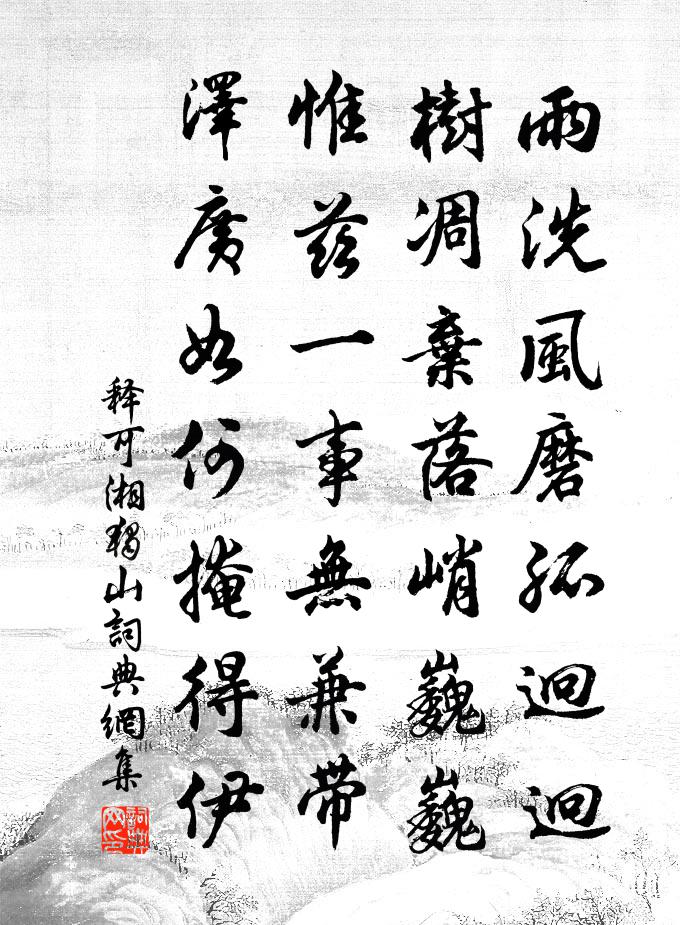 雨洗風磨孤迥迥
樹凋葉落峭巍巍
惟茲一事無兼帶
澤廣如何掩得伊
释可湘獨山詞典網集